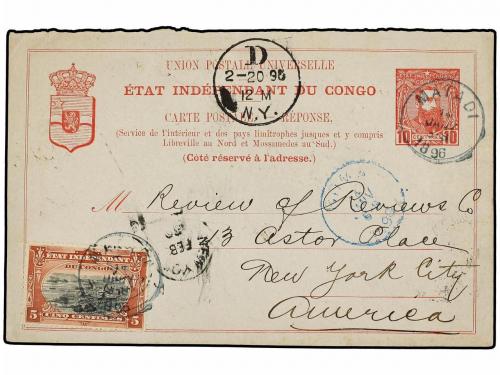 UNION POSTALE UNIVERSELLE
ÉTAT INDÉPENDANT DU CONGO
CARTE POSTALE RÉPONSE.
(Service de l'intérieur et des pays limitrophes jusques et y compris
Libreville au Nord et Mossamedes au Sud.)
(Côté réservé à l'adresse.)
D
2-20 96
12 M
N.Y.
MATADI
1896
10
10
M Review of Reviews Co
13 Astor Place,
New York City
America
FEB
ÉTAT INDÉPENDANT
DU CONGO
5 CINQ CENTIMES 5